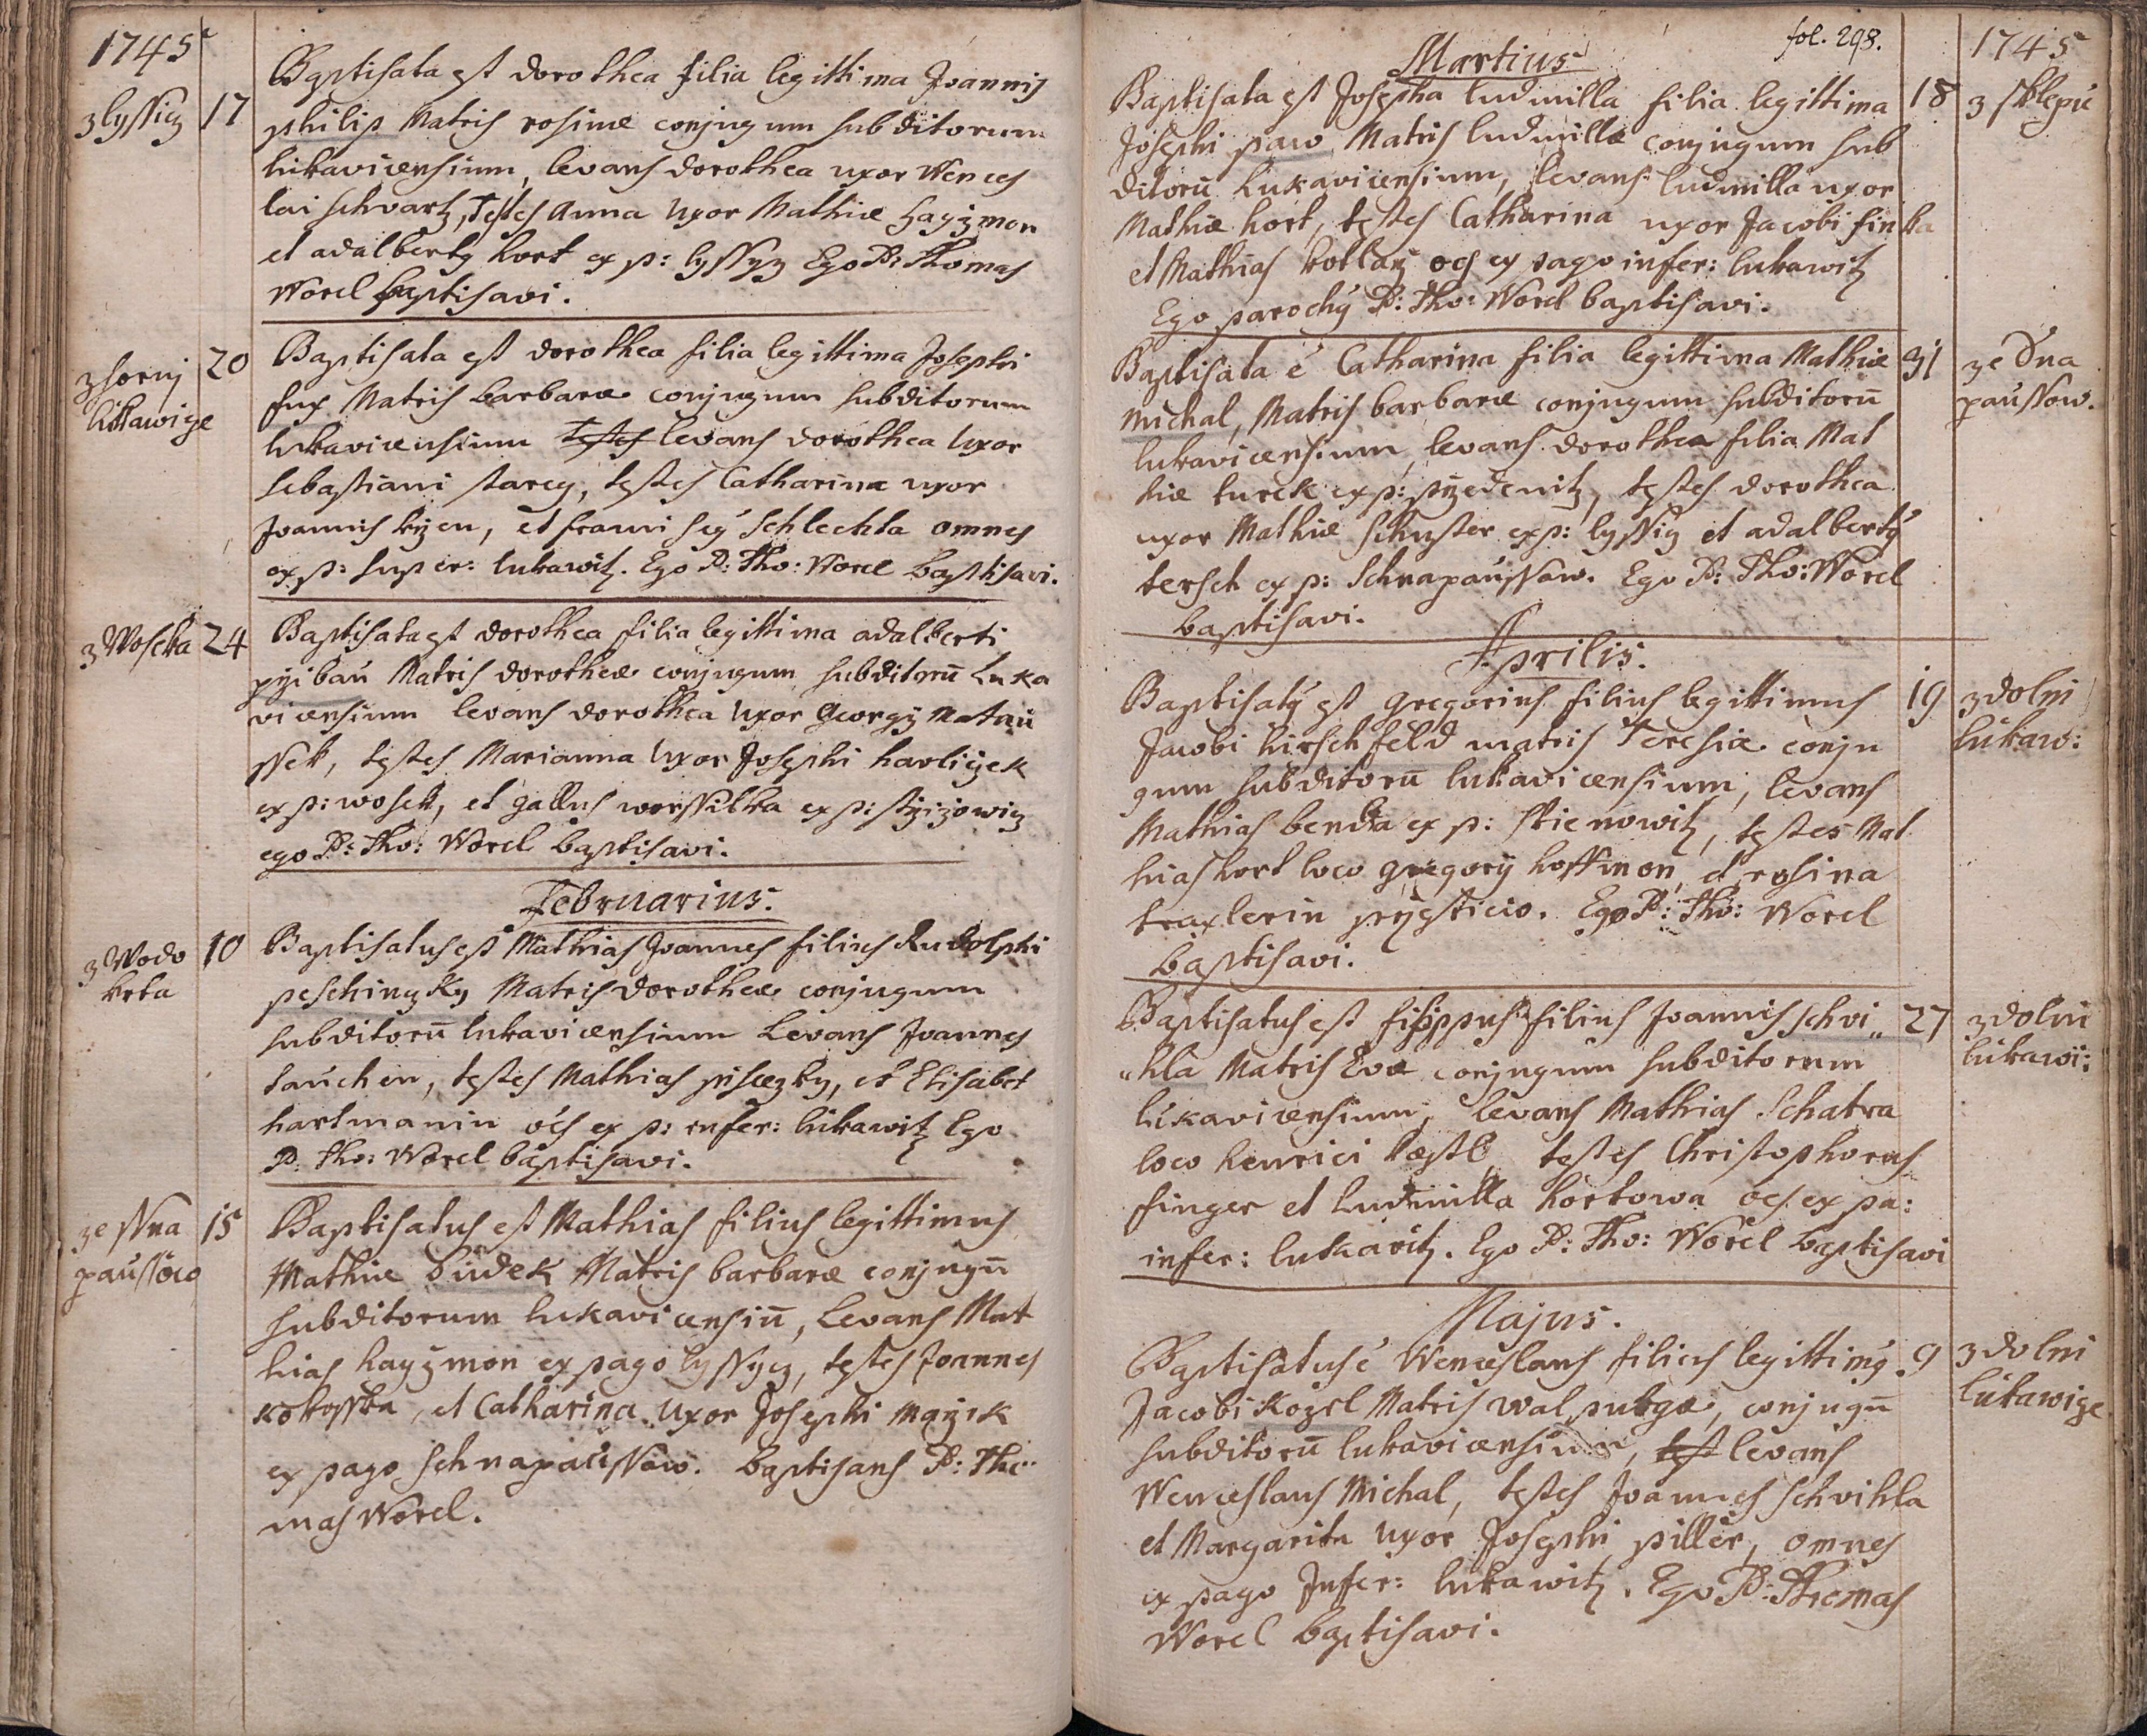 1745
z lyssicz 17
Baptisata est dorothea filia legittima Joannis
philip Matris rosinæ conjugum subditorum
lukavicensium, levans dorothea uxor Wences
lai schvartz, Testes Anna Uxor Mathiæ hayzmon
et adalberty hort ex p: lyssyz Ego P: Thomas
Worel baptisavi.
z horni 20
lukawize
Baptisata est dorothea filia legittima Josephi
fux Matris barbaræ conjugum subditorum
lukavicensium testes levans dorothea Uxor
sebastiani starey, testes Catharina uxor
Joannis kizen, et francisey Schlechta omnes
ex p: super: lukawitz. Ego P: Tho: Worel baptisavi.
z Woseka 24
Baptisata est dorothea filia legittima adalberti
pzibaú Matris dorotheæ conjugum subditorū Luka
vicensium levans dorothea Uxor Georgy Mataú
ssek, testes Marianna Uxor Josephi havliczek
ex p: wosek, et gallus worssilka ex p: stzizowicz
ego P: Tho: Worel baptisavi.
Februarius.
z Wodo 10
krta
Baptisatus est Mathias Joannes filius Rudolphi
peschingky Matris dorotheæ conjugum
subditorū lukavicensium Levans Joannes
tauchen, testes Mathias piseczky, et Elisabet
hartmanin oēs ex p: infer: lukawitz Ego
P: Tho: Worel baptisavi.
ze ssna 15
paussow
Baptisatus est Mathias filius legittimus
Mathiæ dudek Matris barbaræ conjugū
subditorum lukavicensiū, Levans Mat
hias hayzmon ex pago lyssycz, testes Joannes
kokosska, et Catharina Uxor Josephi mayzik
ex pago schnapaússow. baptisans P: Tho
mas Worel.
fol. 298.
1745
Martius
Baptisata est Josepha ludmilla filia legittima 18 z sklepu
Josephi paw Matris ludmillæ conjugum sub
ditorū Lukavicensium, levans ludmilla uxor
Mathiæ hort, testes Catharina uxor Jacobi finka
et Mathias kollarz oēs ex pago infer: lukawitz
Ego parochy P: Tho: Worel baptisavi.
Baptisata é Catharina filia legittima Mathiæ 31 ze dna
michal, Matris barbaræ conjugum subditorū paússow.
lukavicensium, levans dorothea filia Mat
hiæ turek ex p: pzedenitz, testes dorothea
uxor Mathiæ Schuster ex p: lyssiz et adalberty
tersch ex p: Schnapaússow. Ego P: Tho: Worel
baptisavi.
Aprilis.
Baptisatý est gregorius filius legittimus 19 z dolni
Jacobi hirschfeld matris Teresiæ conju lúkaw:
gum subditorū lukavicensium, levans
Mathias benda ex p: stienowitz, testes Mat
hias hort loco gregorij hoffmon, et rosina
traxlerin pzesticio. Ego P: Tho: Worel
baptisavi.
Baptisatus est filippus filius Joannis schvi„ 27 z dolni
„hla Matris Evæ conjugum subditorum lúkawi:
lukavicensium, levans Mathias Schatra
loco henrici kæstl testes Christophorus
finger et ludmilla hortowa oēs ex pa:
infer: lukawitz. Ego P: Tho: Worel baptisavi
Majus.
Baptisatus é Wenceslaus filius legittimý 9 z dolni
Jacobi Kozel Matris walpurgæ, conjugū lúkawize
subditorū lukavicensium, test levans
Wenceslaus Michal, testes Joannes schvihla
et Margarita Uxor Josephi piller, omnes
ex pago Infer: lukawitz. Ego P: Thomas
Worel baptisavi.